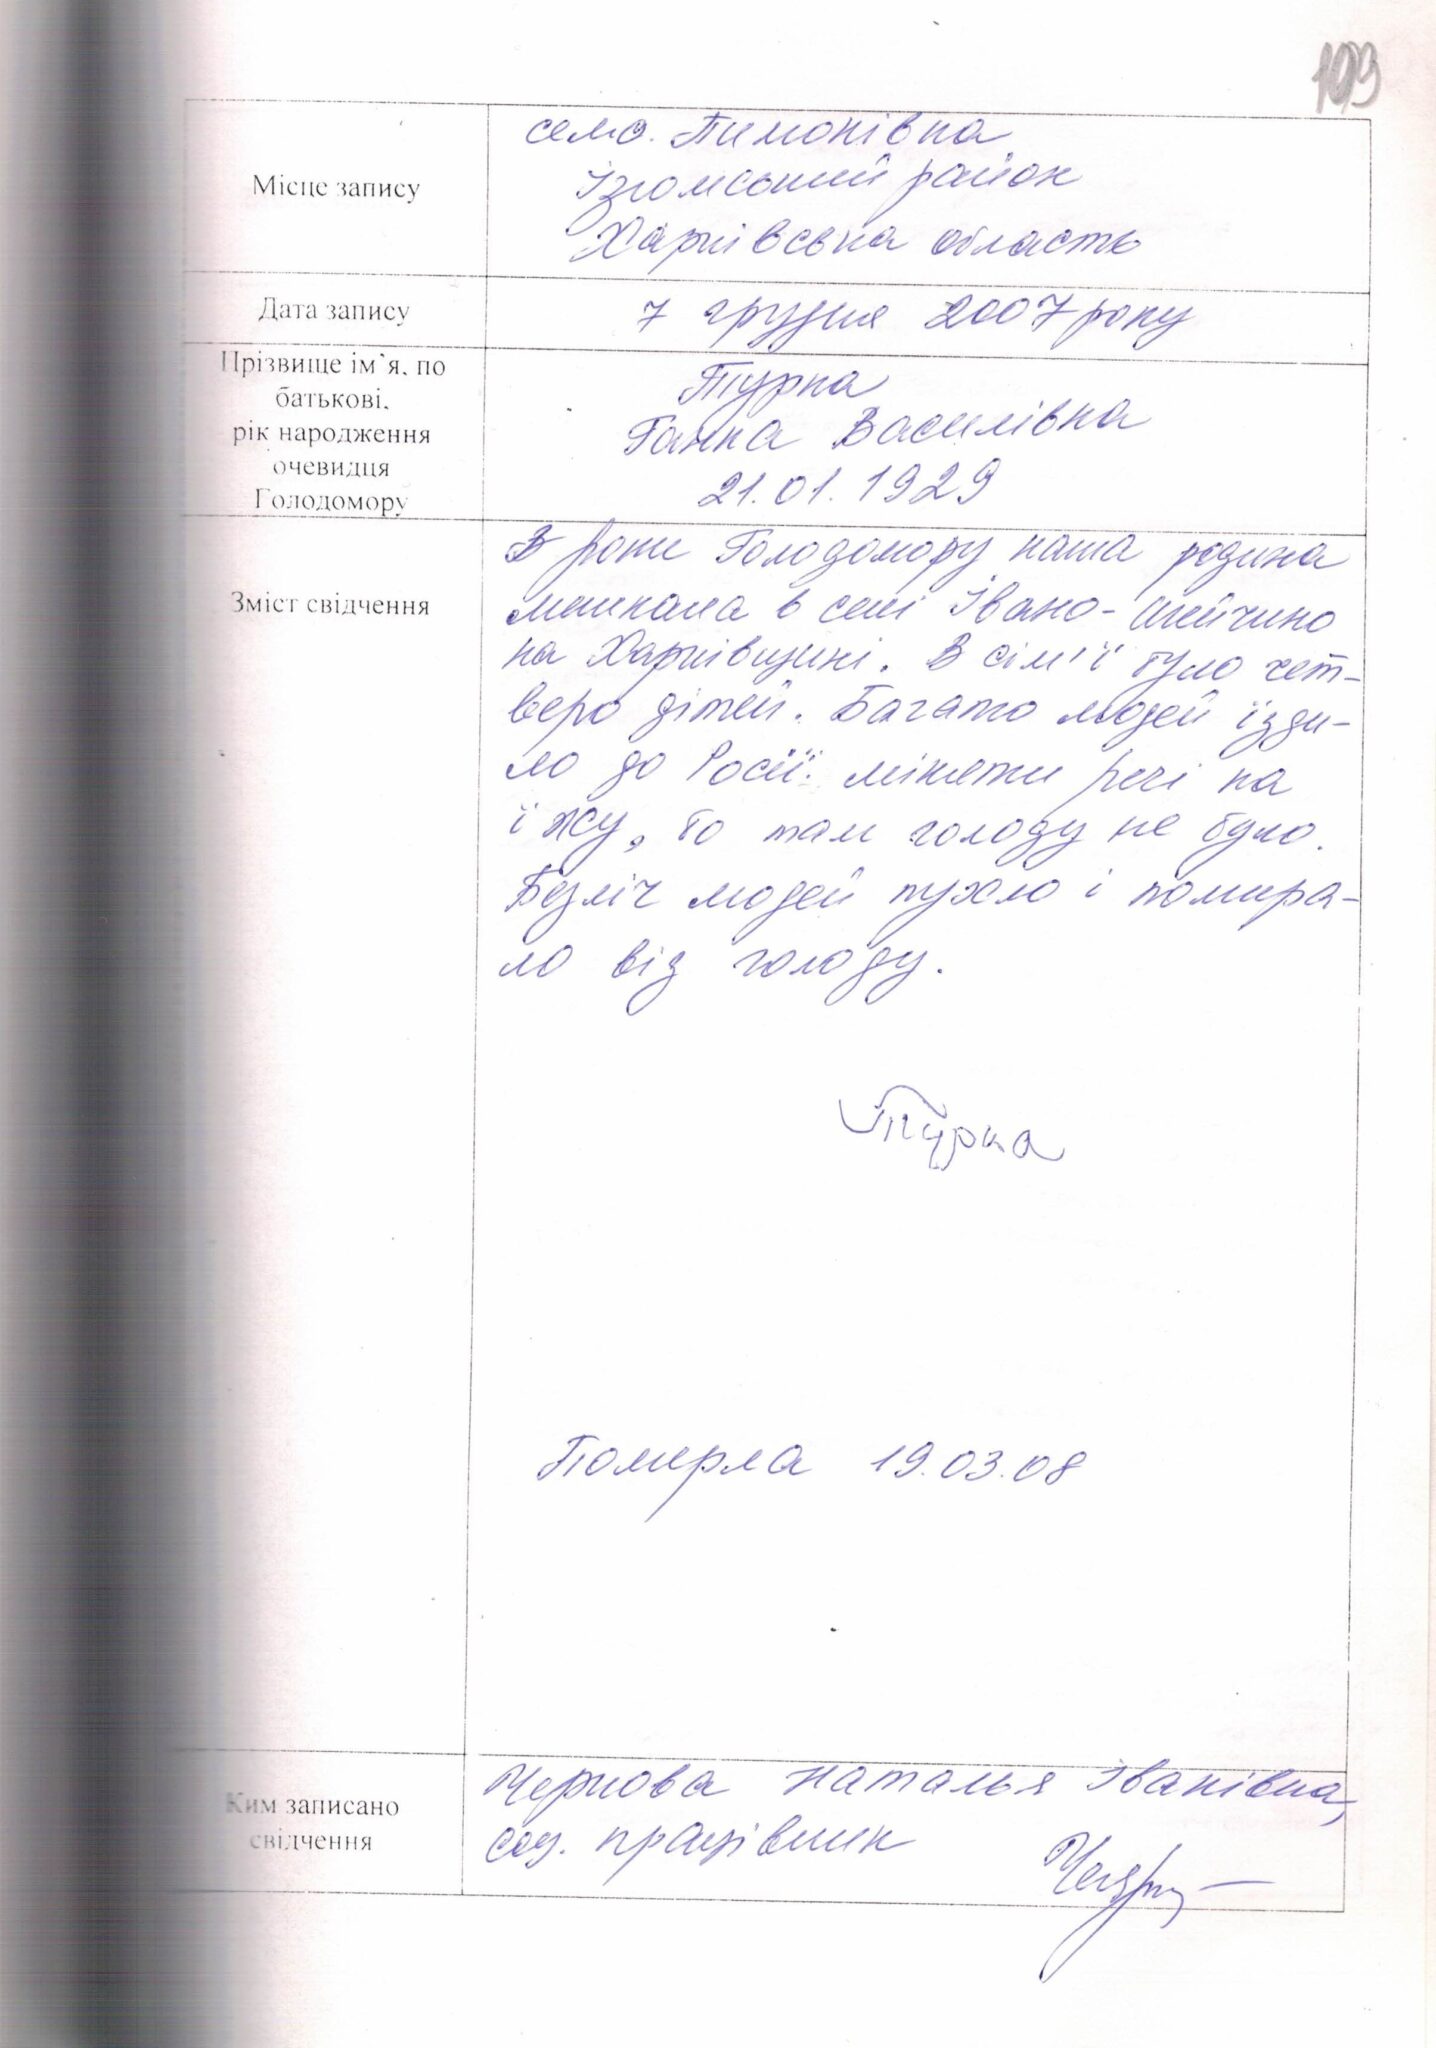 109
Місце запису
село. Пимонівка
Ізюмський район
Харківська область
Дата запису
7 грудня 2007 року
Прізвище ім`я, по
батькові,
рік народження
очевидця
Голодомору
Турка
Ганна Василівна
21.01.1929
Зміст свідчення
В роки Голодомору наша родина
мешкала в селі Івано-Шийчино
на Харківщині. В сім'ї було чет-
веро дітей. Багато людей їзди-
ло до Росії міняти речі на
їжу, бо там голоду не було.
Безліч людей пухло і помира-
ло від голоду.
Турка
Померла 19.03.08
Ким записано
свідчення
Чернова Наталья Іванівна,
соц. працівник